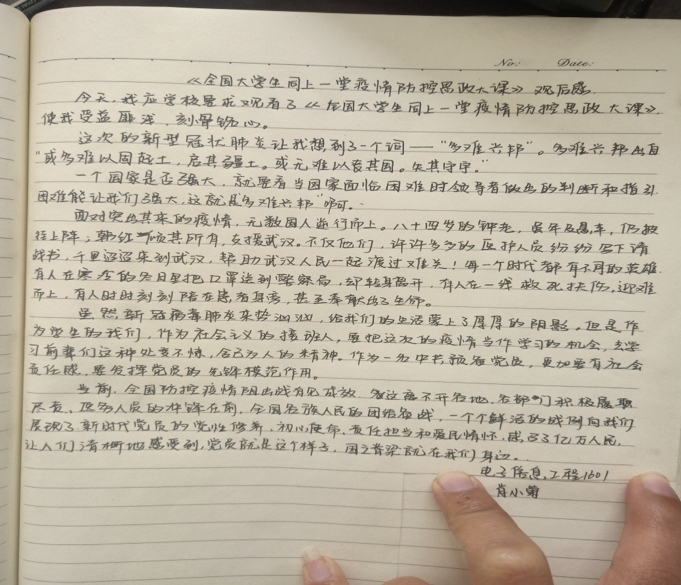 No: Date:
《全国大学生同上一堂疫情防控思政大课》观后感
今天,我应学校要求观看了《全国大学生同上一堂疫情防控思政大课》,
使我受益匪浅,刻骨铭心。
这次的新型冠状肺炎让我想到了一个词——“多难兴邦”。多难兴邦出自
“或多难以固其国,启其疆土。或无难以丧其国。失其守宇。”
一个国家是否强大,就要看当国家面临困难时领导者做出的判断和指引
困难能让我们强大,这就是“多难兴邦”
面对突出其来的疫情,无数国人逆行而上。八十四岁的钟老,
挂上阵;韩红倾其所有,支援武汉。不仅他们,许许多多的医护人员纷纷写下请
战书,千里迢迢来到武汉,帮助武汉人民一起渡过难关!每一个时代都有不同的英雄
有人在寒冷的冬日里把口罩送到警察局,却转身离开,有人在一线救死扶伤,迎难
而上,有人时时刻刻陪在患者身旁,甚至奉献出了生命。
虽然新冠病毒肺炎来势汹汹,给我们的生活蒙上了厚厚的阴影。但是作
为学生的我们,作为社会主义的接班人,要把这次的疫情当作学习的机会,去学
习前辈们这种处变不惊,舍己为人的精神。作为一名中共预备党员,更加要有社会
责任感,要发挥党员的先锋模范作用。
当前,全国防控疫情阻击战有也成效 这离不开各地、各部门积极履职
尽责,医务人员的冲锋在前,全国各族人民的团结奋战,一个个鲜活的战例向我们
展现了新时代党员的党性修养,初心使命、责任担当和爱民情怀,感召了亿万人民,
让人们清晰地感受到,党员就是这个样子,国之脊梁就在我们身边。
电子信息工程1601
肖小菊